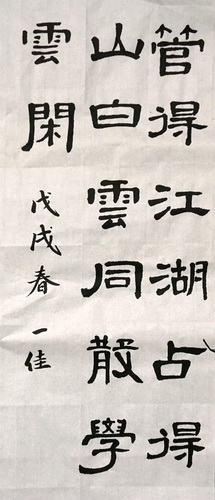 管得江湖占得
山白雲同散學
雲閑
戊戌春一佳